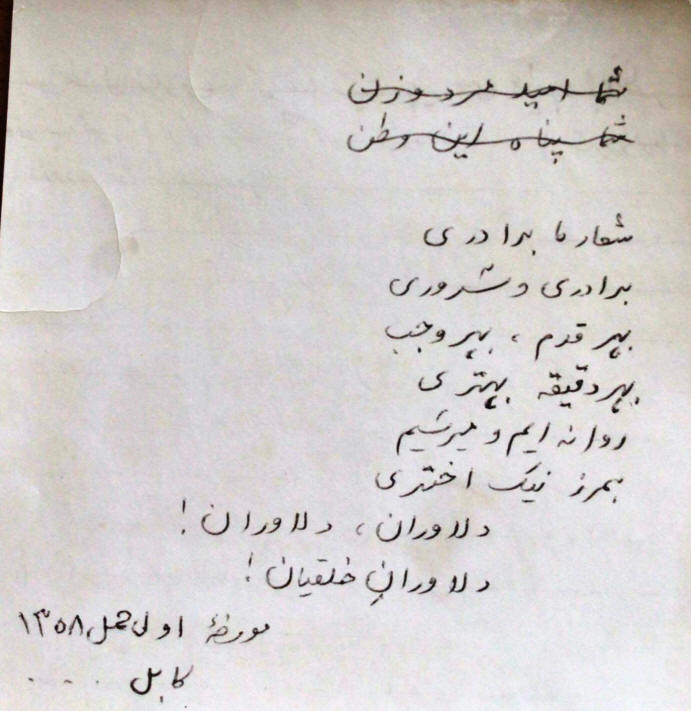 شما امید مرد و زن
شما پناه این وطن
شعار ما برادری
برادری و سروری
بهر قدم، بهر وجب
بهر دقیقه بهتری
روانه ایم و میرسیم
بمرز نیک اختری
دلاوران، دلاوران!
دلاورانِ خلقیان!
مورخهٔ اول حمل ۱۳۵۸
کابل ....